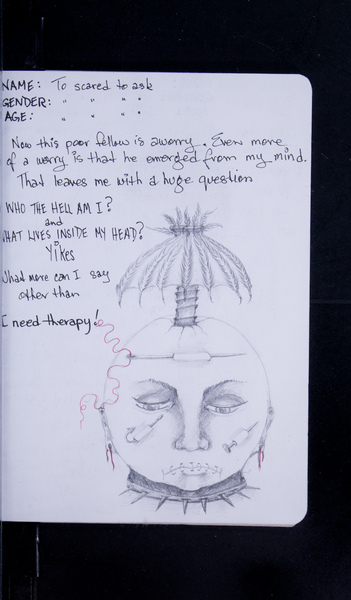 NAME: To scared to ask
GENDER: " " " "
AGE: " " " "
Now this poor fellow is a worry. Even more
of a worry is that he emerged from my mind.
That leaves me with a huge question
WHO THE HELL AM I?
and
WHAT LIVES INSIDE MY HEAD?
Yikes
What more can I say
other than
I need therapy!